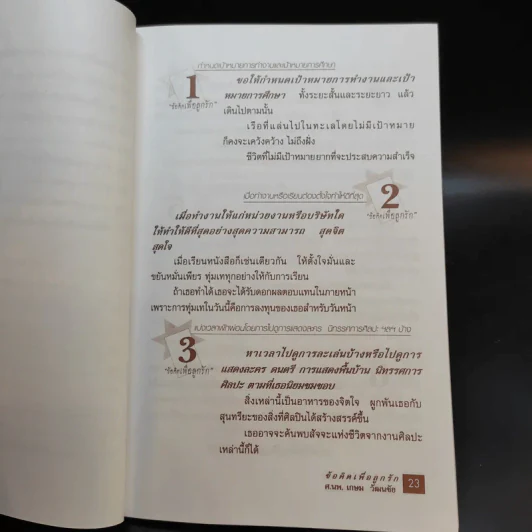 กำหนดเป้าหมายการทำงานและเป้าหมายการศึกษา
1
"ข้อคิดเพื่อลูกรัก"
ขอให้กำหนดเป้าหมายการทำงานและเป้า
หมายการศึกษา ทั้งระยะสั้นและระยะยาว แล้ว
เดินไปตามนั้น
เรือที่แล่นไปในทะเลโดยไม่มีเป้าหมาย
ก็คงจะเคว้งคว้าง ไม่ถึงฝั่ง
ชีวิตที่ไม่มีเป้าหมายยากที่จะประสบความสำเร็จ
เมื่อทำงานหรือเรียนต้องตั้งใจทำให้ดีที่สุด
2
"ข้อคิดเพื่อลูกรัก"
เมื่อทำงานให้แก่หน่วยงานหรือบริษัทใด
ให้ทำให้ดีที่สุดอย่างสุดความสามารถ สุดจิต
สุดใจ
เมื่อเรียนหนังสือก็เช่นเดียวกัน ให้ตั้งใจมั่นและ
ขยันหมั่นเพียร ทุ่มเททุกอย่างให้กับการเรียน
ถ้าเธอทำได้เธอจะได้รับดอกผลตอบแทนในภายหน้า
เพราะการทุ่มเทในวันนี้คือการลงทุนของเธอสำหรับวันหน้า
แบ่งเวลาพักผ่อนโดยการไปดูการแสดงละคร นิทรรศการศิลปะ ฯลฯ บ้าง
3
"ข้อคิดเพื่อลูกรัก"
หาเวลาไปดูการละเล่นบ้างหรือไปดูการ
แสดงละคร ดนตรี การแสดงพื้นบ้าน นิทรรศการ
ศิลปะ ตามที่เธอนิยมชมชอบ
สิ่งเหล่านี้เป็นอาหารของจิตใจ ผูกพันเธอกับ
สุนทรียะของสิ่งที่ศิลปินได้สร้างสรรค์ขึ้น
เธออาจจะค้นพบสัจจะแห่งชีวิตจากงานศิลปะ
เหล่านี้ก็ได้
ข้อคิดเพื่อลูกรัก
ศ.นพ. เกษม วัฒนชัย 23